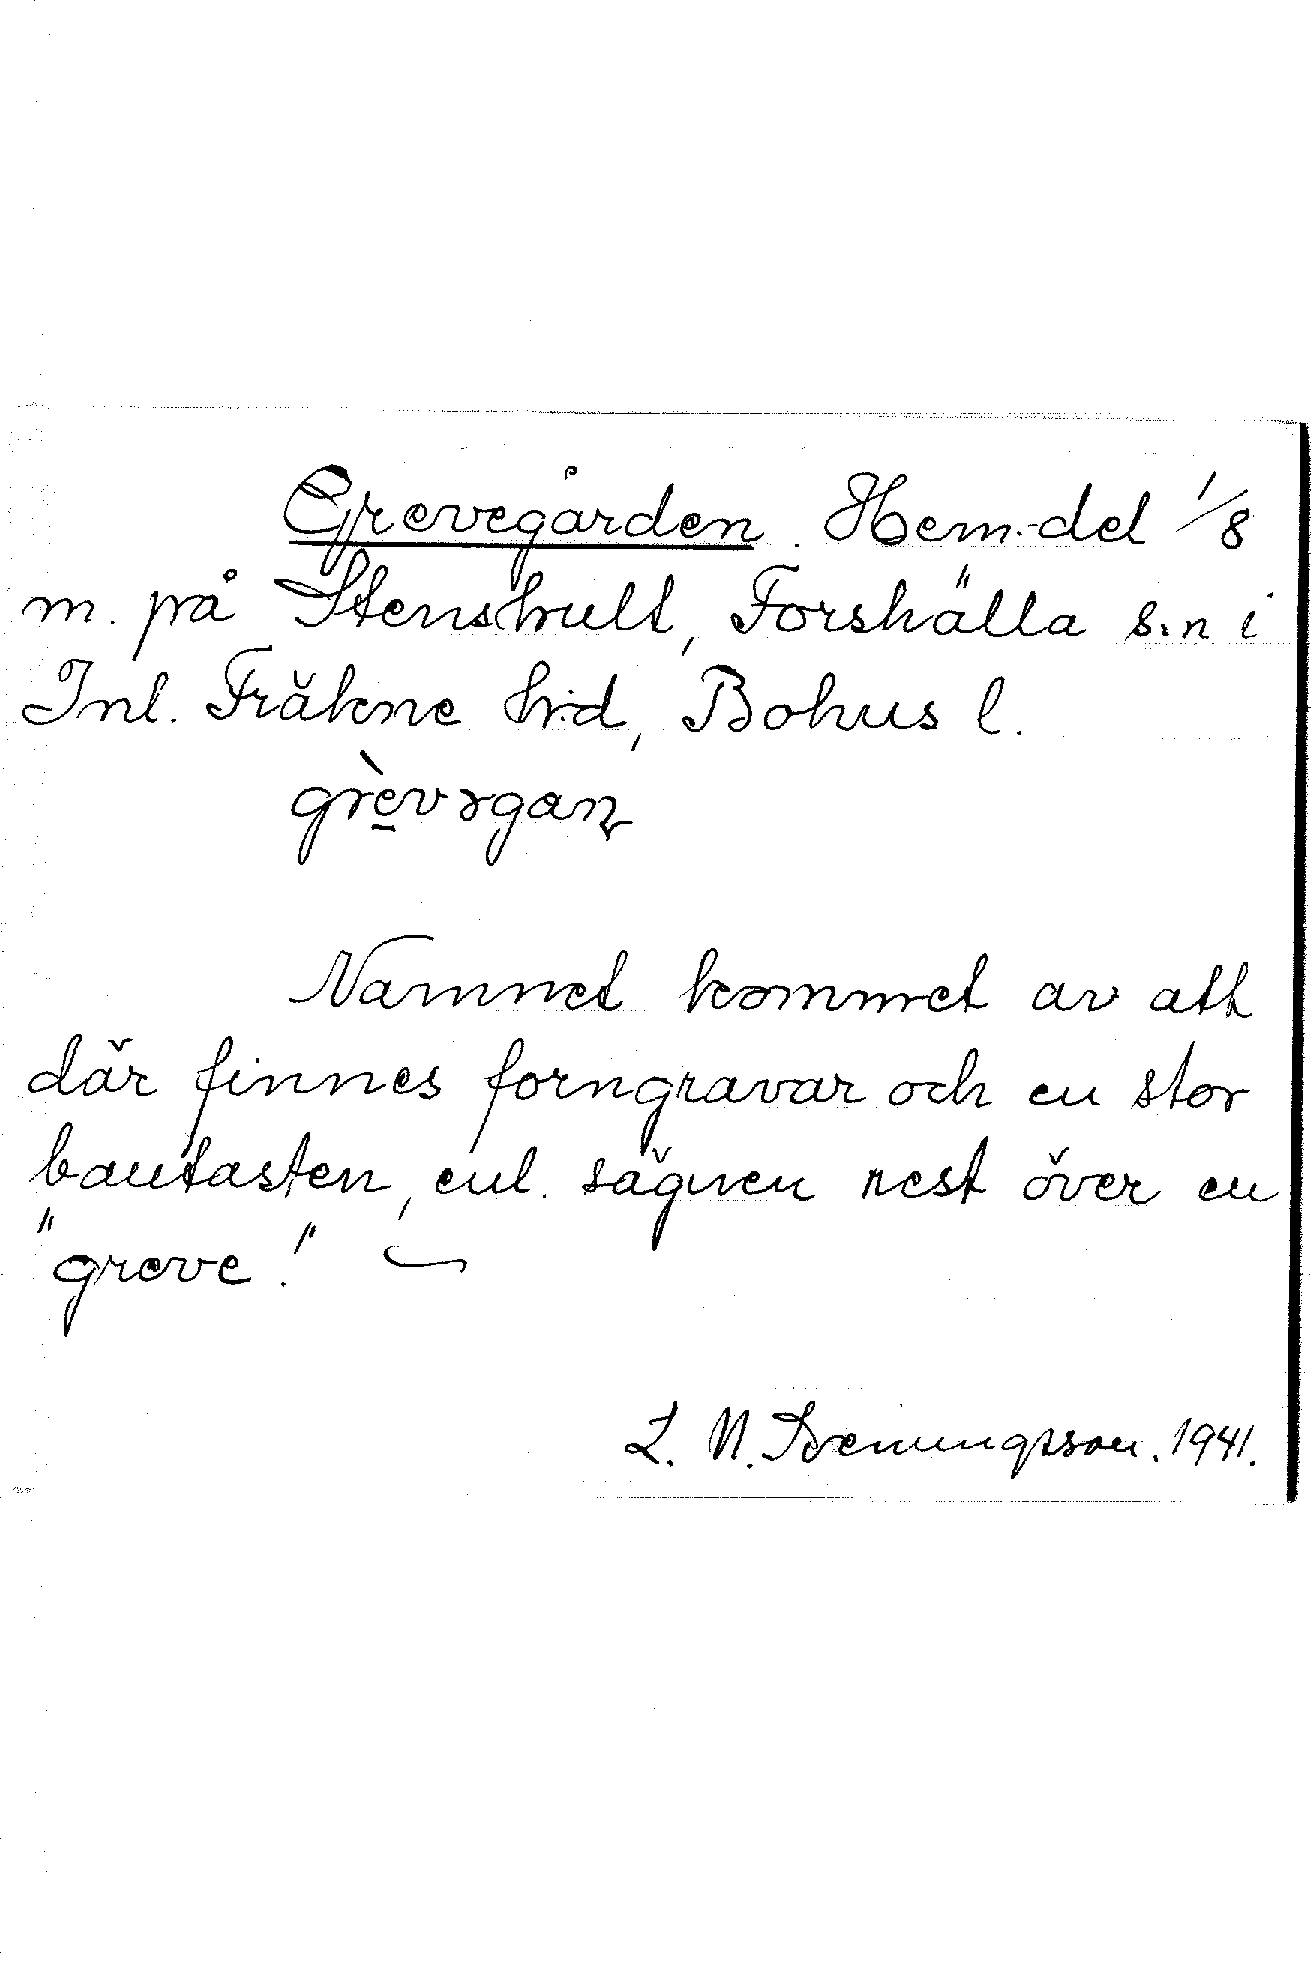 Grevegården. Hem.-del 1/8
m. på Stenshult, Forshälla s:n i
Inl. Fräkne h:d, Bohus l.
grèvəgan
Namnet kommet av att
där finnes forngravar och en stor
bautasten, enl. sägnen rest över en
"greve".
L. N. Svenungsson. 1941.